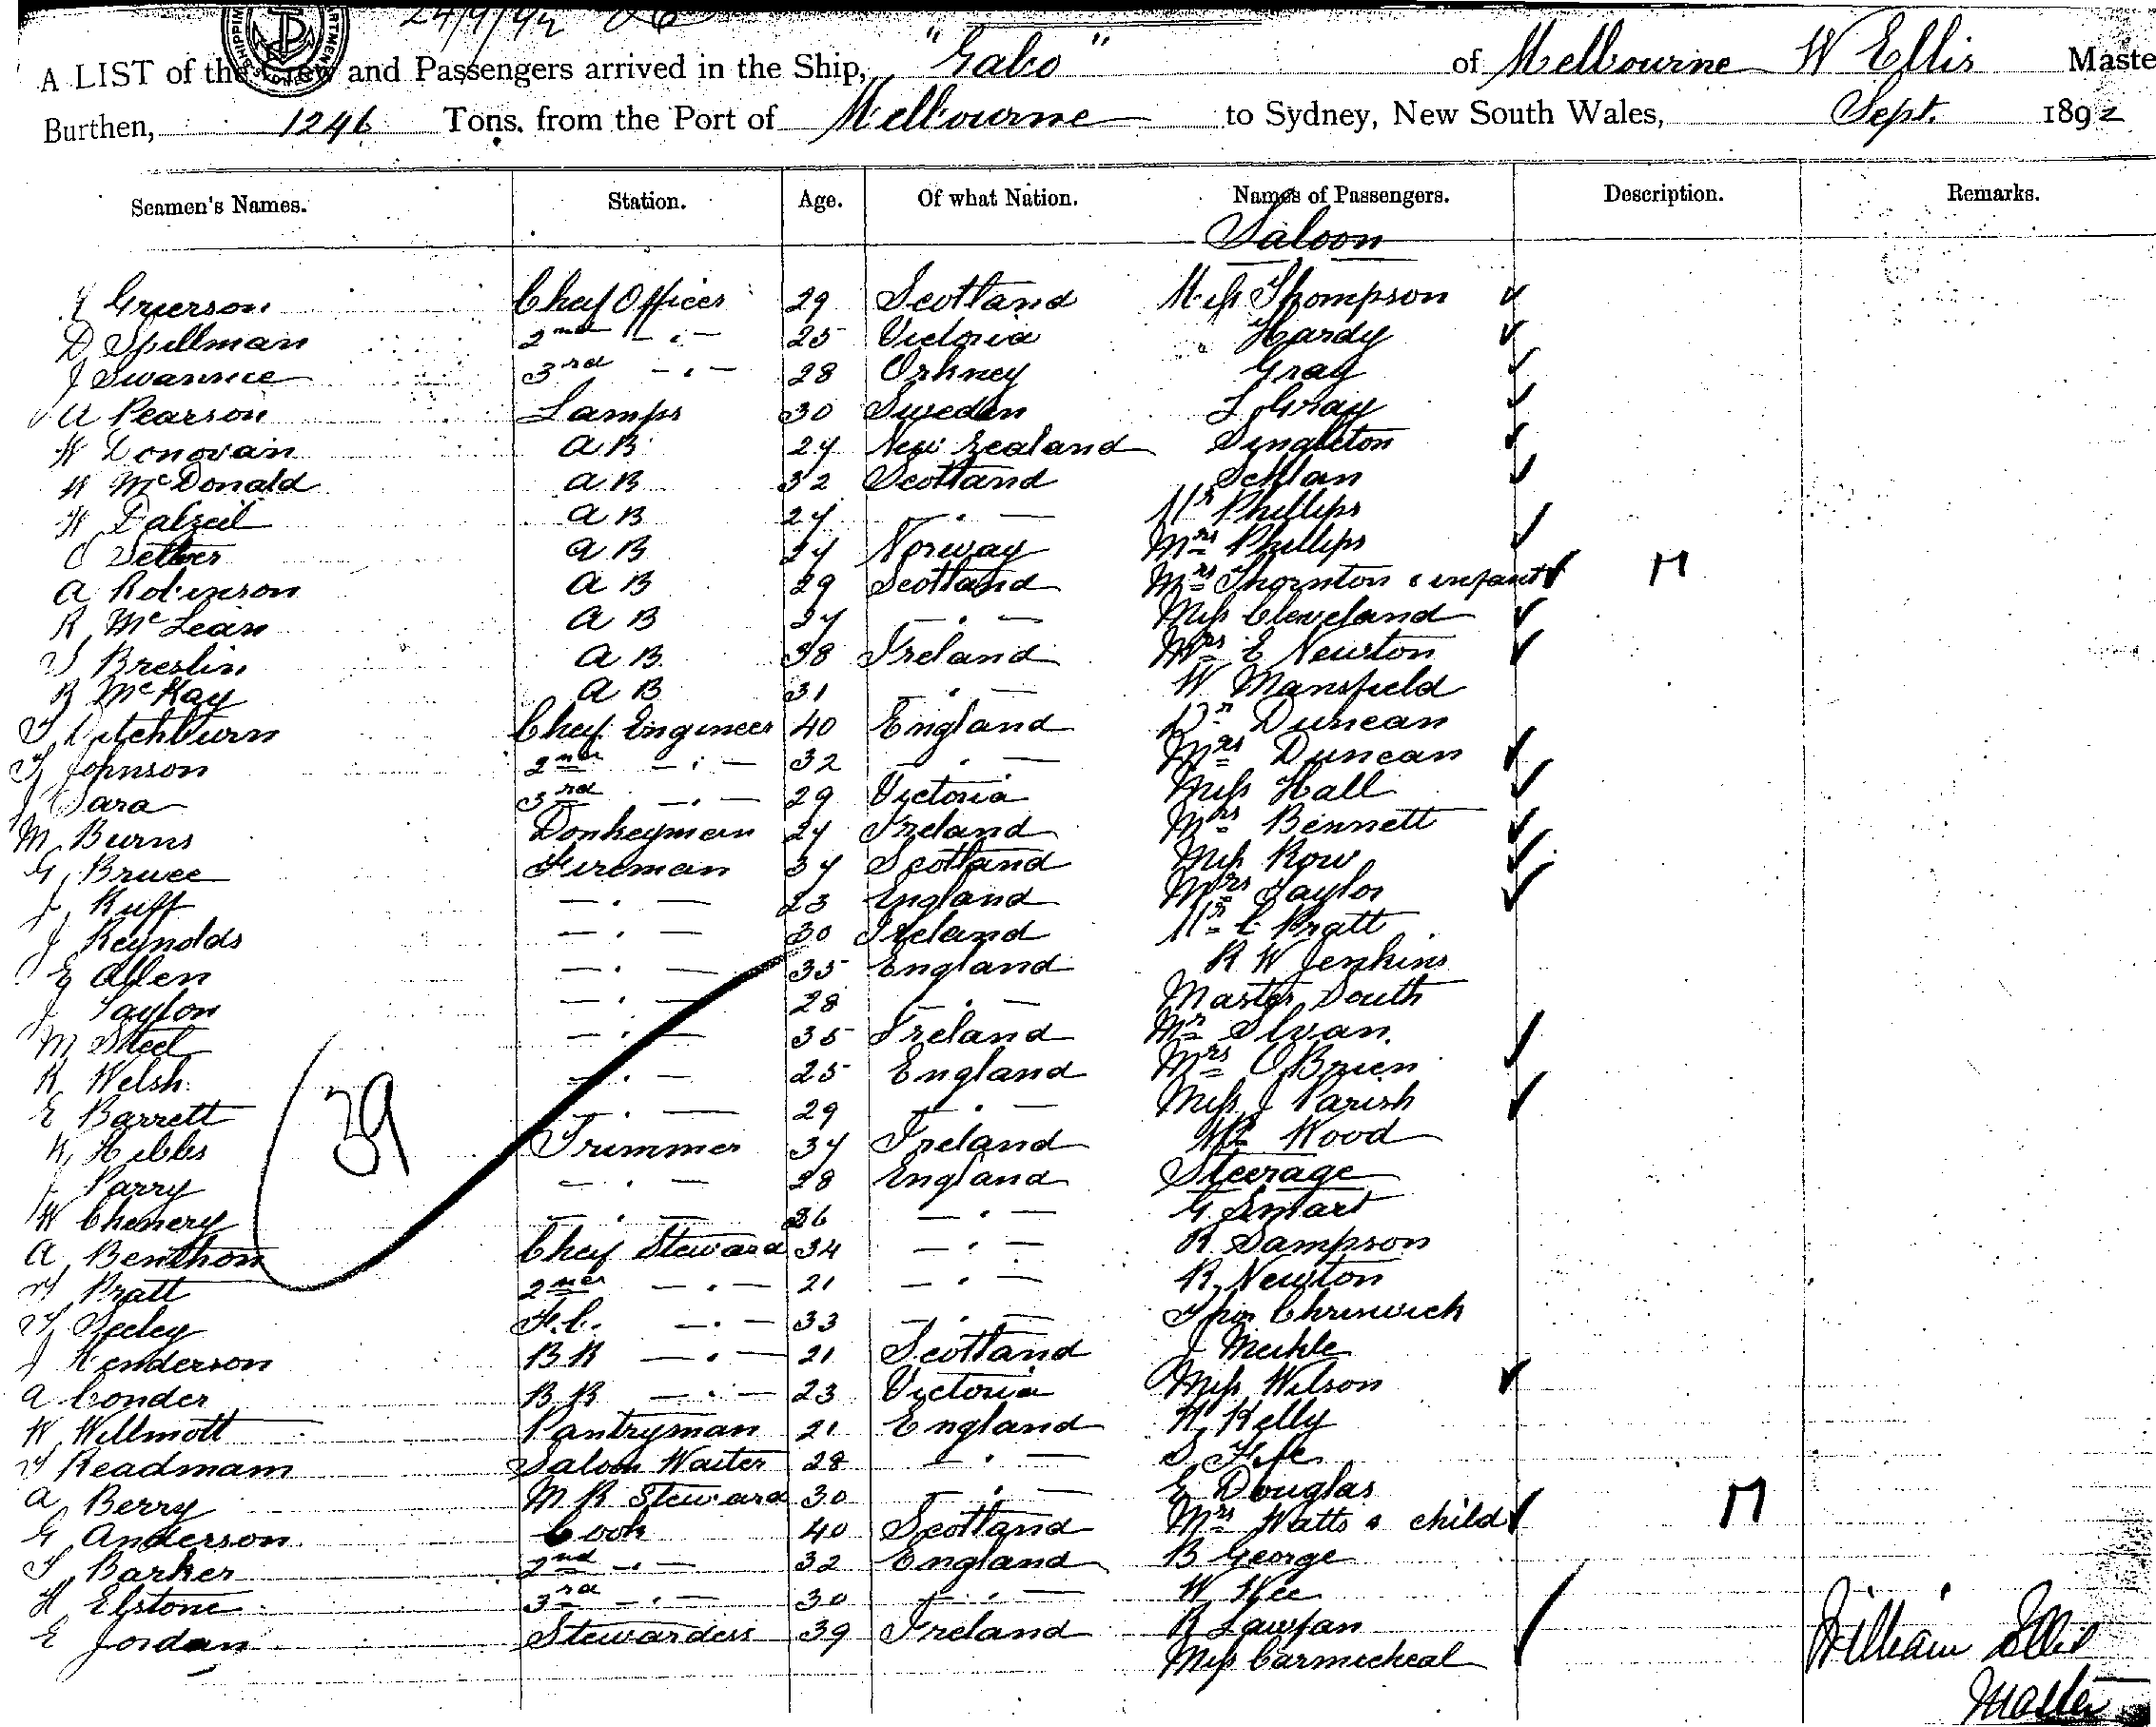 24/9/92
A LIST of the Crew and Passengers arrived in the Ship, "Gabo" of Melbourne W Ellis Maste
Burthen, 1246 Tons, from the Port of Melbourne to Sydney, New South Wales, Sept. 1892
Seamen's Names. Station. Age. Of what Nation. Names of Passengers. Description. Remarks.
Saloon
Grierson Chief Officer 29 Scotland Miss Thompson
D Spillman 2nd " 25 Victoria " Hardy
J Swannee 3rd " 28 Orkney Gray
A Pearson Lamps 30 Sweden L Gray
W Donovan AB 24 New Zealand Singleton
W McDonald AB 32 Scotland
W Dalzeil AB 24 " Mr Phillips
C AB 24 Norway Mrs Phillips
A Robinson AB 29 Scotland Mrs Thornton & infant M
R McLean AB 24 " Miss Cleveland
J Breslin AB 38 Ireland Mrs E Newton
R McKay AB 31 " W Mansfield
T Ditchburn Chief Engineer 40 England Dr Duncan
T Johnson 2nd " 32 " Mrs Duncan
J Sara 3rd " 29 Victoria Miss Hall
M Burns Donkeyman 24 Ireland Mrs Bennett
G Bruce Fireman 34 Scotland Miss Row
J Ruff " 23 England Mrs Taylor
J Reynolds " 30 Ireland Mr C Pratt
E Allen " 35 England R W Jenkins
J Taylor " 28 " Master South
M Steel " 35 Ireland Mr
R Welsh " 25 England Mrs O'Brien
E Barrett " 29 " Miss J Parish
39
W Hibbs Trimmer 34 Ireland Mr Wood
J Parry " 28 England Steerage
W Chenery " 26 " G. Smart
A Benthom Chief Steward 34 " R Sampson
H Pratt 2nd " 21 " R Newton
T Seeley F.C. " 33 " Thos
J Henderson BR " 21 Scotland J Meikle
A Conder BR " 23 Victoria Miss Wilson
W Willmott Pantryman 21 England W Kelly
T Readmam Saloon Waiter 28 " S Fife
A Berry M R Steward 30 " E Douglas
G Anderson Cook 40 Scotland Mrs Watts & child M
T Barker 2nd " 32 England B George
H Elstone 3rd " 30 " W Kee
E Jordan Stewardess 39 Ireland R
Miss Carmicheal
William Ellis
Master